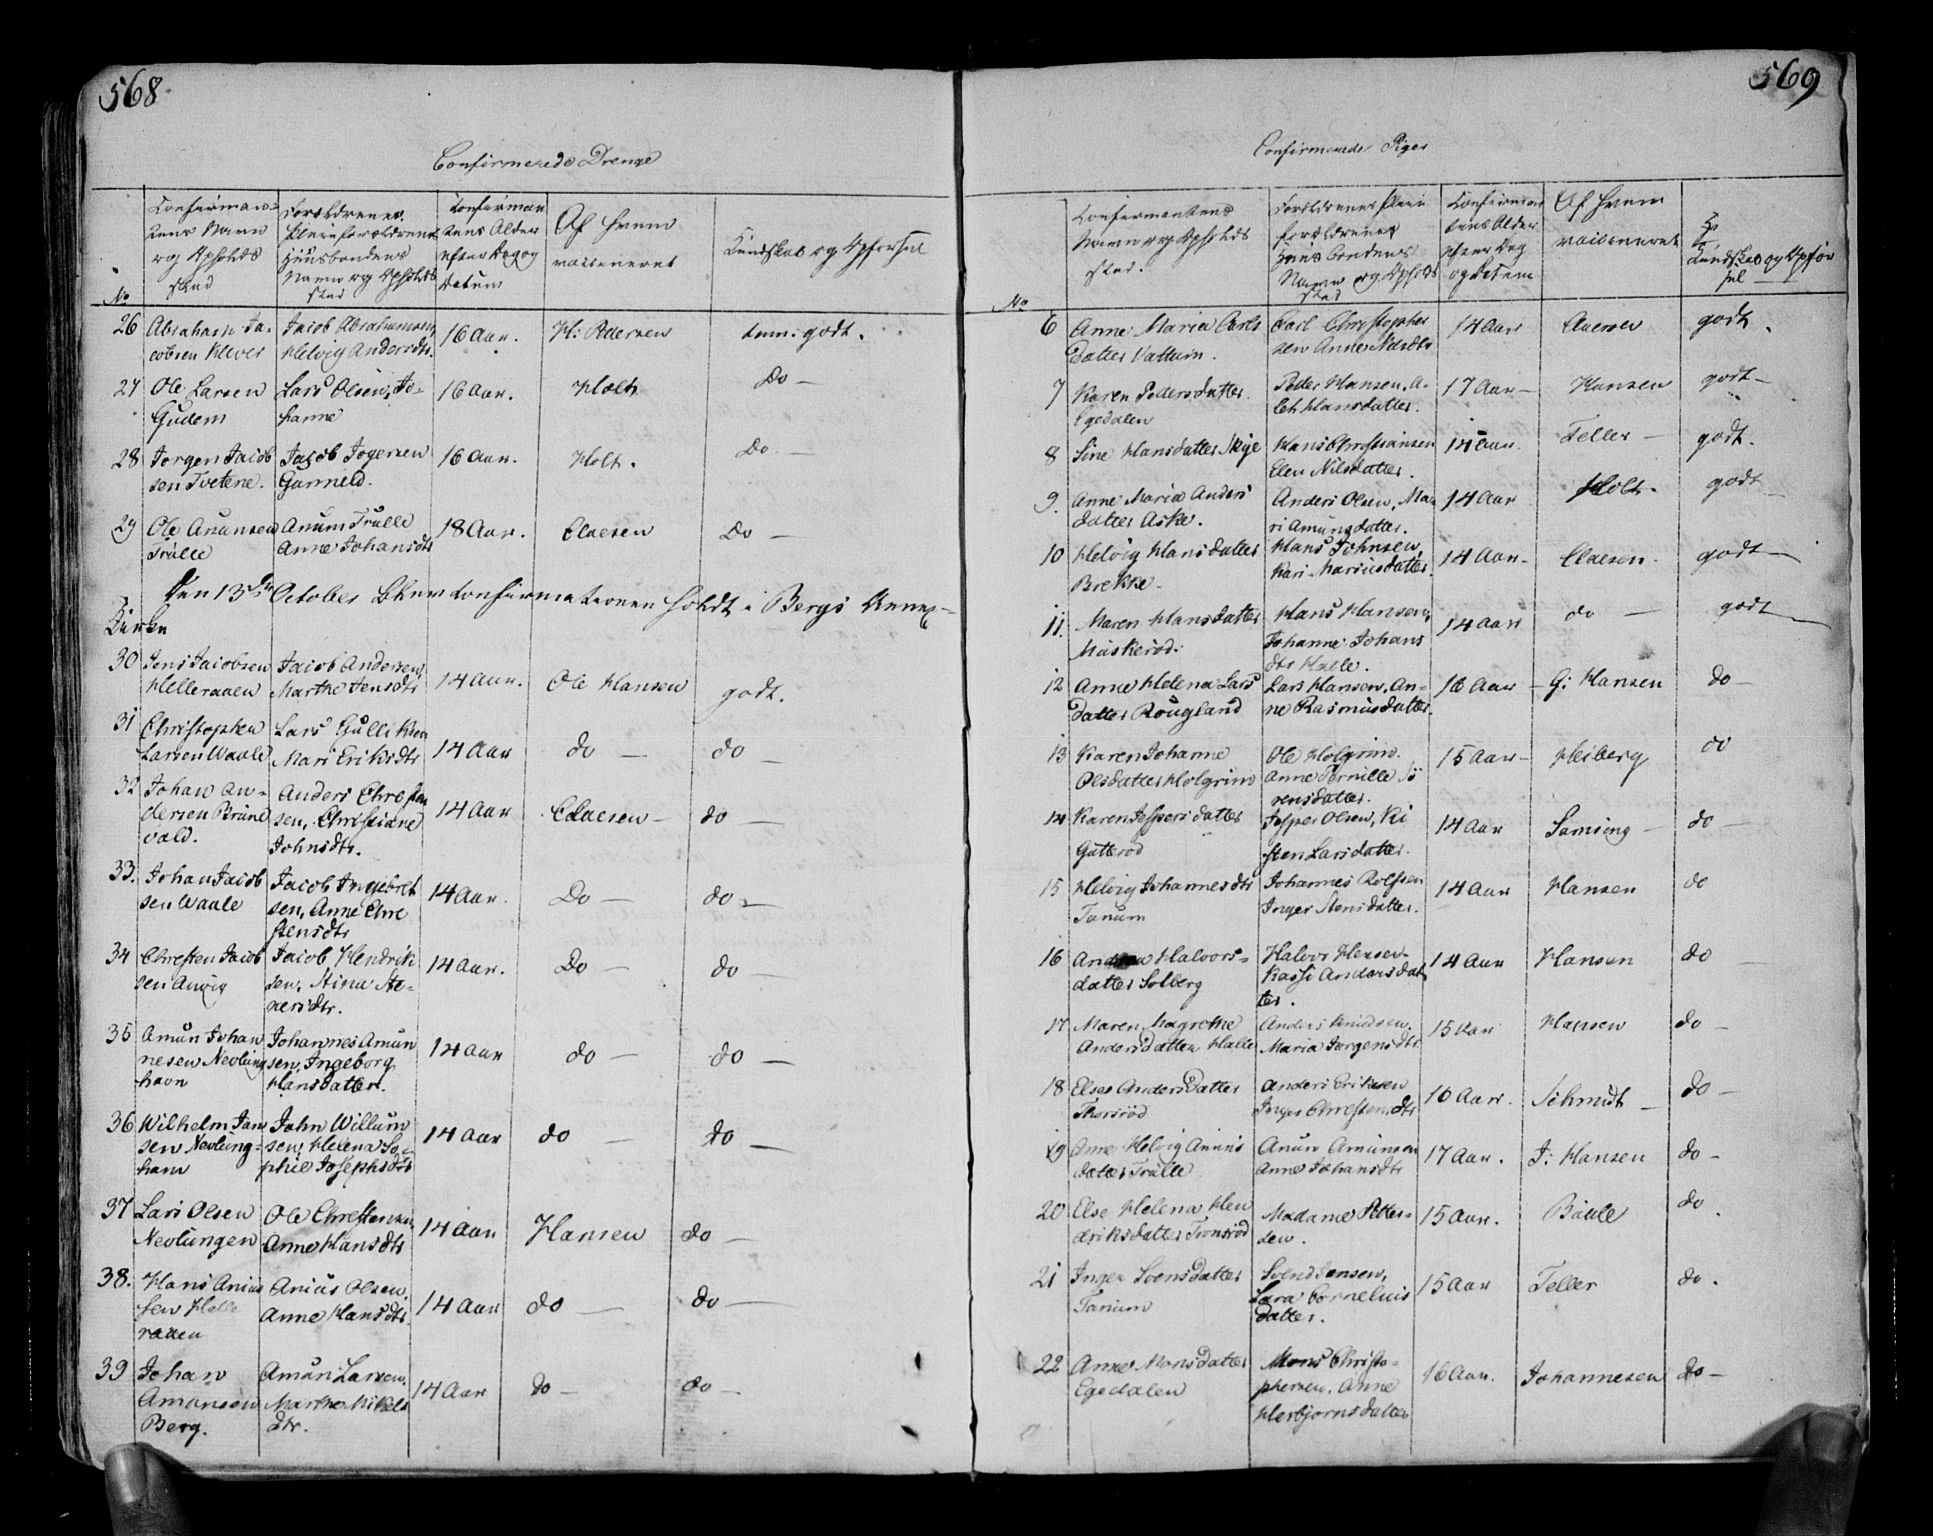 568
Confirmerede Drenge
No
Confirman-
tens Navn
og Opholds
sted
Forældrenes
Pleieforældrenes
Huusbondens
Navn og Opholds
sted
Confirman
tens Alder
efter Dag og
Datum
Af hvem
vaccineret
Kundskab og Opførsel
26 Abraham Ja-
cobsen Klever
Jacob Abrahamsen
Helvig Andersdtr.
16 Aar.
H: Pedersen
tem: godt.
27 Ole Larsen
Gudem
Lars Olsen, Jo-
hanne
16 Aar.
Holt
Do —
28 Jorgen Jacob
sen Tvetene.
Jacob Jogersen
Gunneld.
16 Aar.
Holt.
Do. —
29 Ole Anunsen
Trulle
Anum Trulle
Anne Johansdtr
18 Aar.
Claesen
Do —
Den 13de October blev Confirmationen holdt i Bergs Annex-
Kirke
30 Jens Jacobsen
Helleraaen
Jacob Andersen,
Marthe Jensdtr
14 Aar.
Ole Hansen
godt.
31 Christopher
Larsen Waale
Lars Gulliksen
Mari Eriksdtr
14 Aar
do —
do —
32 Johan An-
dersen Brune
vald.
Anders Chresten
sen, Christiane
Johnsdtr.
14 Aar
Claesen —
do —
33. Johan Jacob
sen Waale
Jacob Ingebret
sen, Anne Chre
stensdtr
14 Aar.
Do —
do —
34 Chresten Jacob
sen Auvig
Jacob Hendrik
sen, Stina
14 Aar.
Do —
do —
35 Amun Johan
nesen Nevlung
havn
Johannes Amun
sen, Ingeborg
Hansdatter.
14 Aar
do —
do —
36 Wilhelm Jan
sen Nevlung-
havn
John Willum
sen, Helena So-
phie Josephsdtr
14 Aar
do —
do —
37 Lars Olsen
Nevlungen
Ole Chrestensen,
Anne Hansdtr
14 Aar
Hansen
do —
38. Hans Anius
sen Helle
raaen
Anius Olsen,
Anne Hansdtr
14 Aar
do —
do —
39 Johan
Amunsen
Berg.
Amun Larsen,
Marthe Mikels
dtr.
14 Aar
do —
do —
569
Confirmerede Piger
No
Confirmantens
Navn og Opholds
sted.
Forældrenes Pleie
forældrenes
Huusbondens
Navn og Opholds
sted
Confirman
tens Alder
efter Dag
og Datum
Af hvem
vaccineret
Kundskab og Opfør
sel
6 Anne Maria Carls
datter Vattum.
Carl Christopher
sen Anne Nilsdtr
14 Aar
Claesen
godt.
7 Karen Pedersdatter.
Egedalen
Peder Hansen, A-
let Hansdatter.
17 Aar —
Hansen
godt —
8 Sine Hansdatter Skye
Hans Christiansen
Elen Nilsdatter.
14 Aar.
Teller —
godt.
9. Anne Maria Anders
datter Aske.
Anders Olsen, Ma-
ri Amunsdatter.
14 Aar
Holt.
godt —
10 Helvig Hansdatter
Brekke.
Hans Johnsen,
Kari Mariusdatter.
14 Aar.
Claesen.
godt —
11. Maren Hansdatter
Muskerød.
Hans Hansen,
Johanne Johans
dtr Halle.
14 Aar
do —
godt —
12 Anne Helena Lars
datter Rougland
Lars Hansen, An-
ne Rasmusdatter.
16 Aar —
G: Hansen
do —
13 Karen Johanne
Olsdatter Holgrim
Ole Holgrim.
Anne Pernille Sö
rensdatter.
15 Aar —
Heiberg
do
14 Karen Jespersdatter
Gutterød
Jesper Olsen, Ki
sten Larsdatter.
14 Aar
Samsing —
do —
15 Helvig Johannesdtr
Tanum
Johannes Rolfsen
Inger Stensdatter.
14 Aar
Hansen
do
16 Andrea Halvors-
datter Solberg
Halvor Hansen
Kassi Andersdat
ter.
14 Aar
Hansen
do —
17 Maren Magrethe
Andersdatter Halle
Anders Knudsen.
Maria Jorgensdtr
15 Aar
Hansen
do —
18 Elses Andersdatter
Thorsrød
Anders Eriksen
Inger Chrestensdtr
16 Aar.
Schmidt —
do —
19 Anne Helvig Anuns
datter Trulle.
Anun Amunsen
Anne Johansdtr
17 Aar.
J: Hansen
do —
20 Else Helena Hen
driksdatter Tronsrød
Madame Peter-
sen.
15 Aar.
do.
21 Inger Svensdatter
Tanum
Svend Jensen,
Sara Cornelius
datter.
15 Aar
Teller
do.
22 Anne Monsdatter
Egedalen
Mons Christo-
phersen, Anne
Herbjornsdatter
16 Aar.
Johannesen
do —